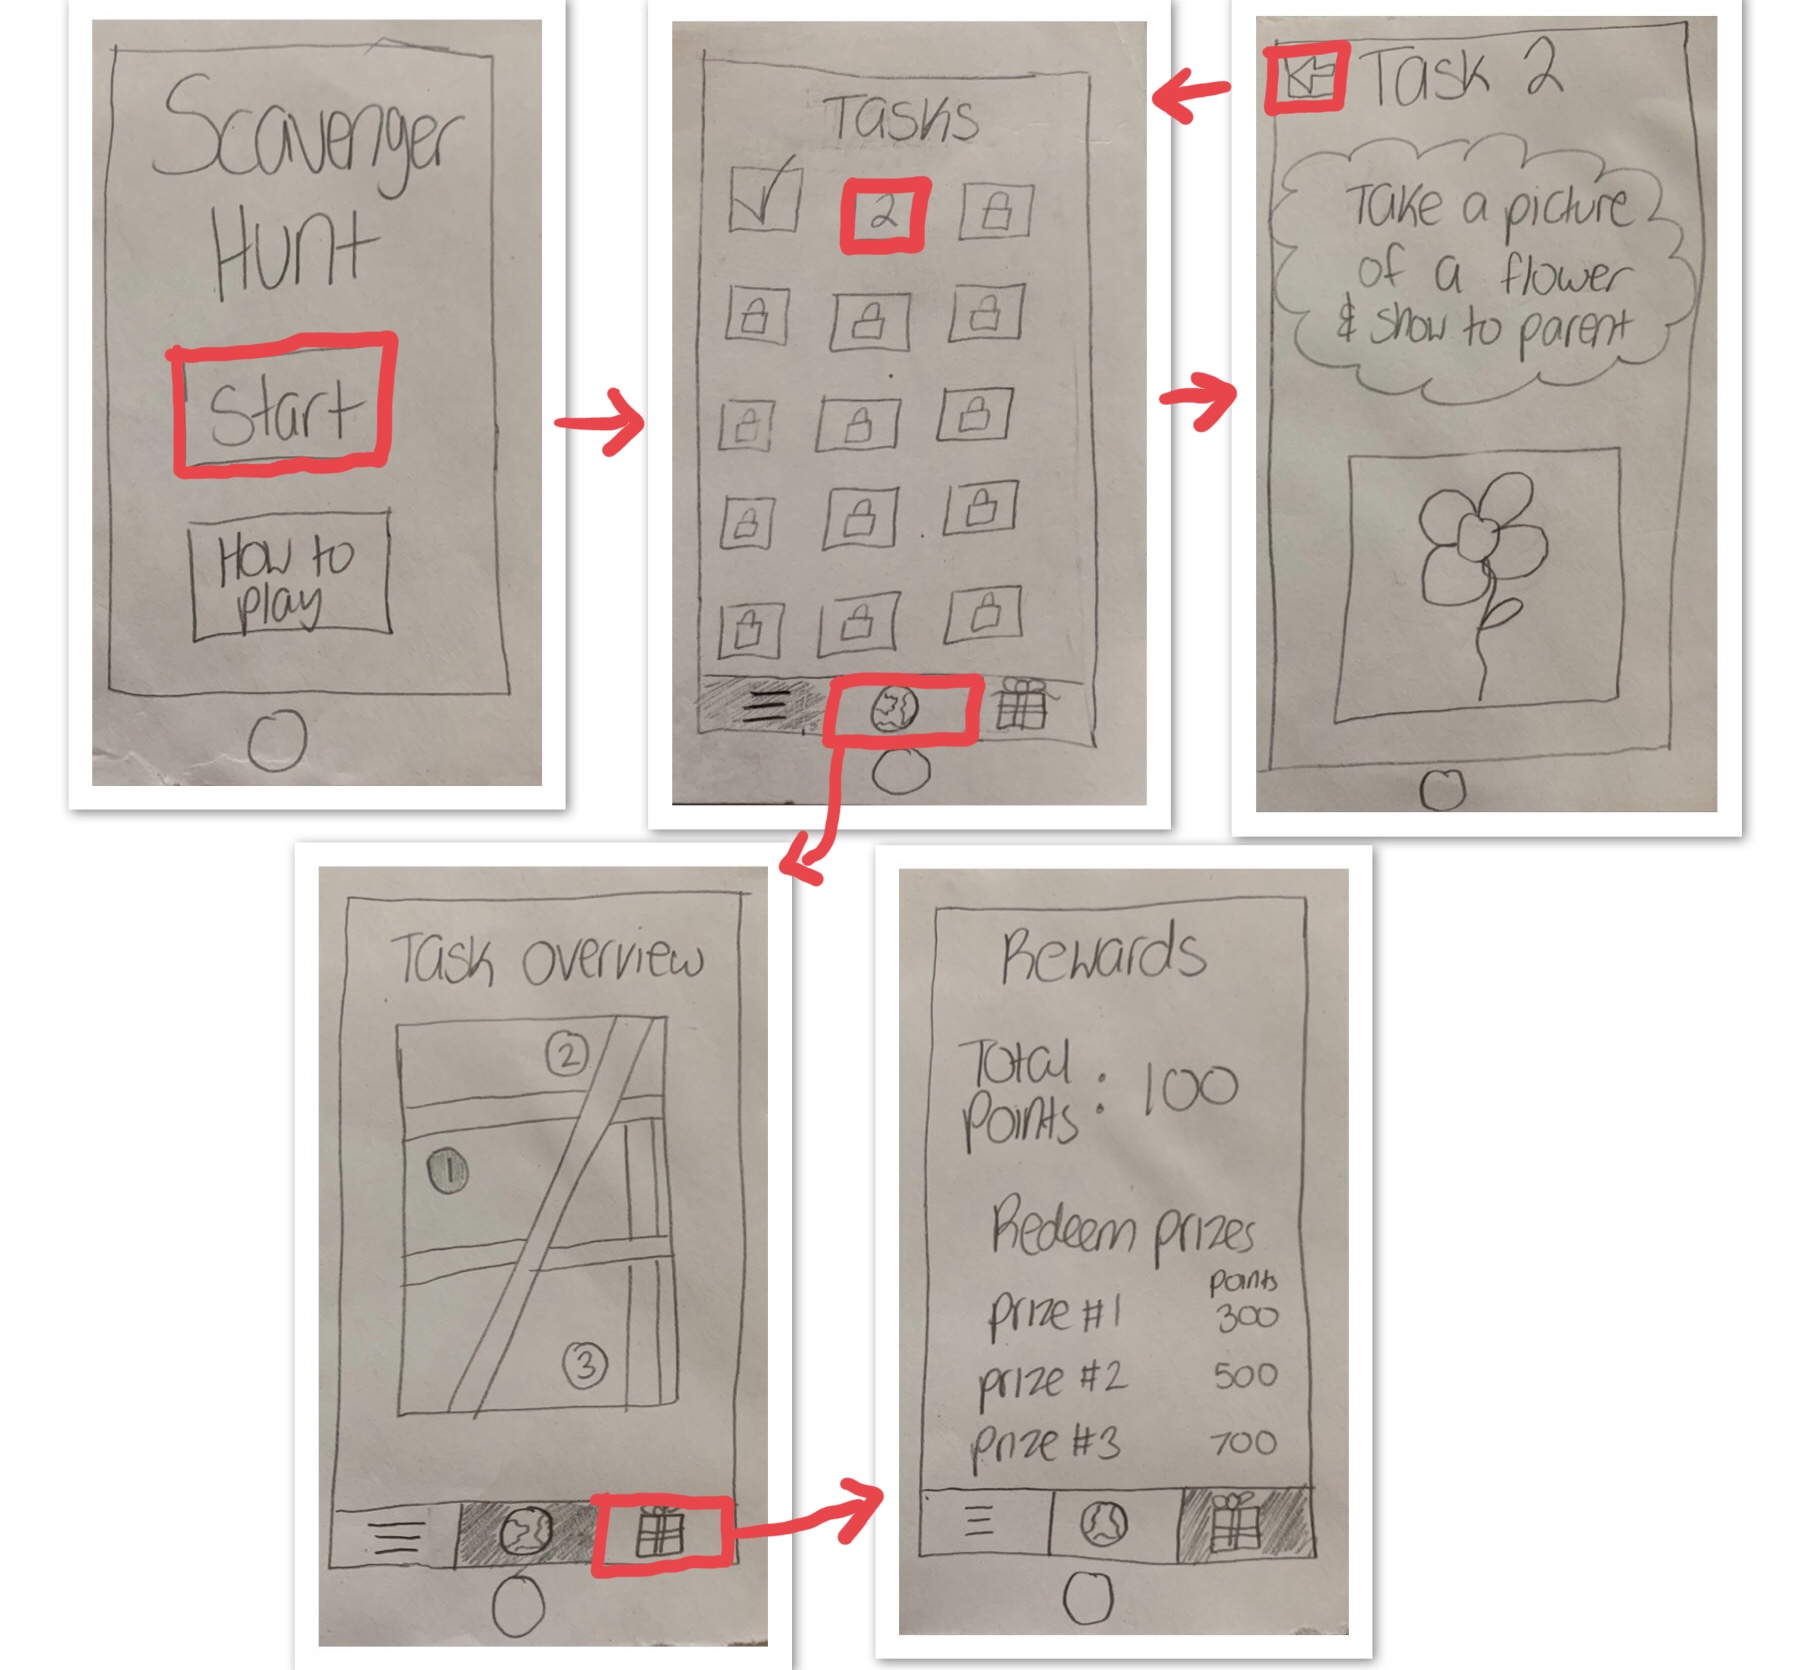 Scavenger
Hunt
Start
How to
play
Tasks
2
Task 2
Take a picture
of a flower
& show to parent
Task overview
2
1
3
Rewards
Total
Points : 100
Redeem prizes
points
prize #1 300
prize #2 500
prize #3 700